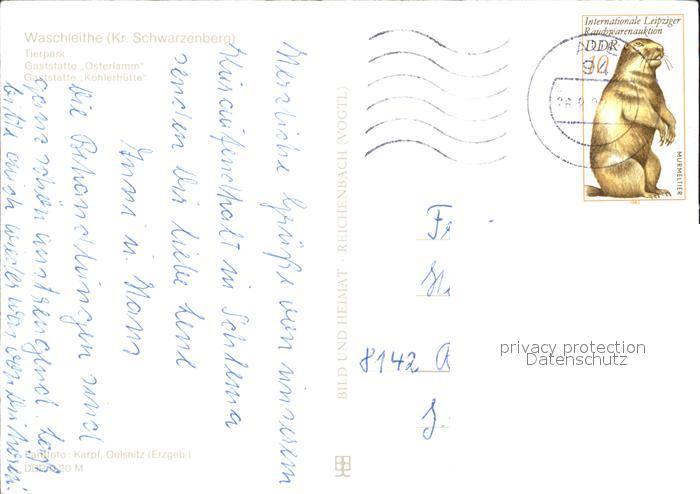 Waschleithe (Kr. Schwarzenberg)
Tierpark
Gaststätte „Osterlamm"
Gaststätte „Köhlerhütte"
Herzliche Grüße von unserem
Kuraufenthalt in Schlema
senden Dir liebe
u. Mann
Die Behandlungen sind
ganz schön anstrengend.
bitte auch wieder von
Karpf, Oelsnitz (Erzgeb.)
DDR 0,20 M
BILD UND HEIMAT · REICHENBACH (VOGTL)
Internationale Leipziger
Rauchwarenauktion
DDR
10
MURMELTIER
1982
94
8142
privacy protection
Datenschutz